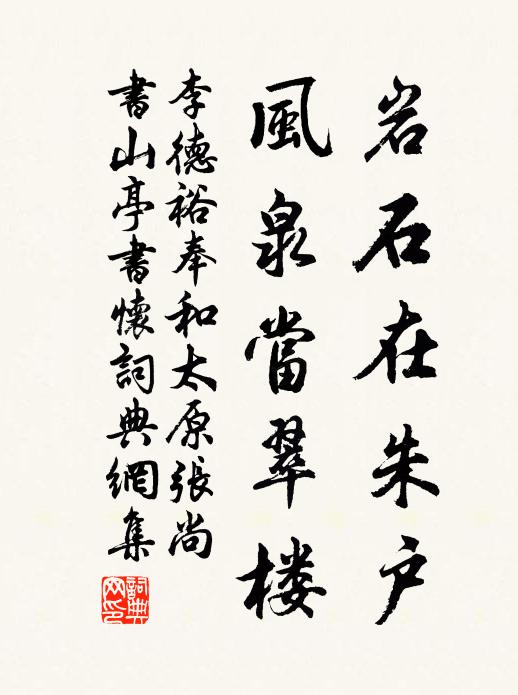 岩石在朱户
風泉當翠楼
李德裕奉和太原張尚
書山亭書懷詞典網集
詞典
网印